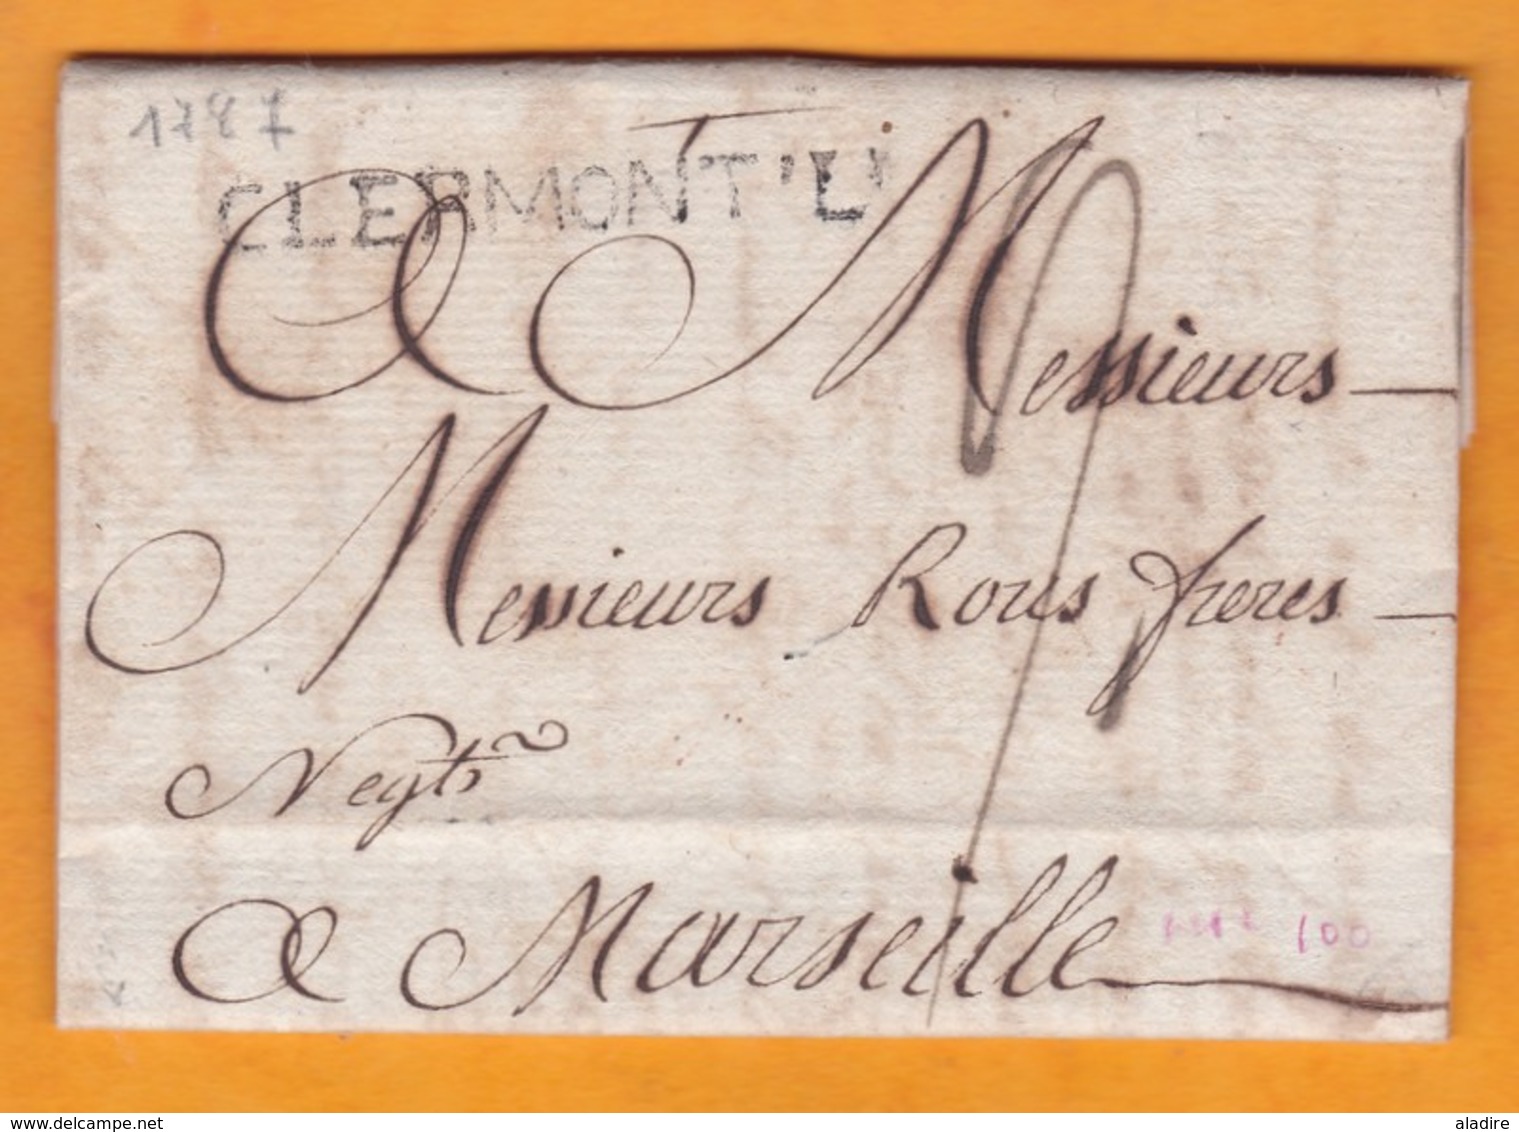 1787
CLERMONT'L'
A Messieurs
Messieurs Roux freres
Negts
A Marseille
100
delcampe.net
aladire